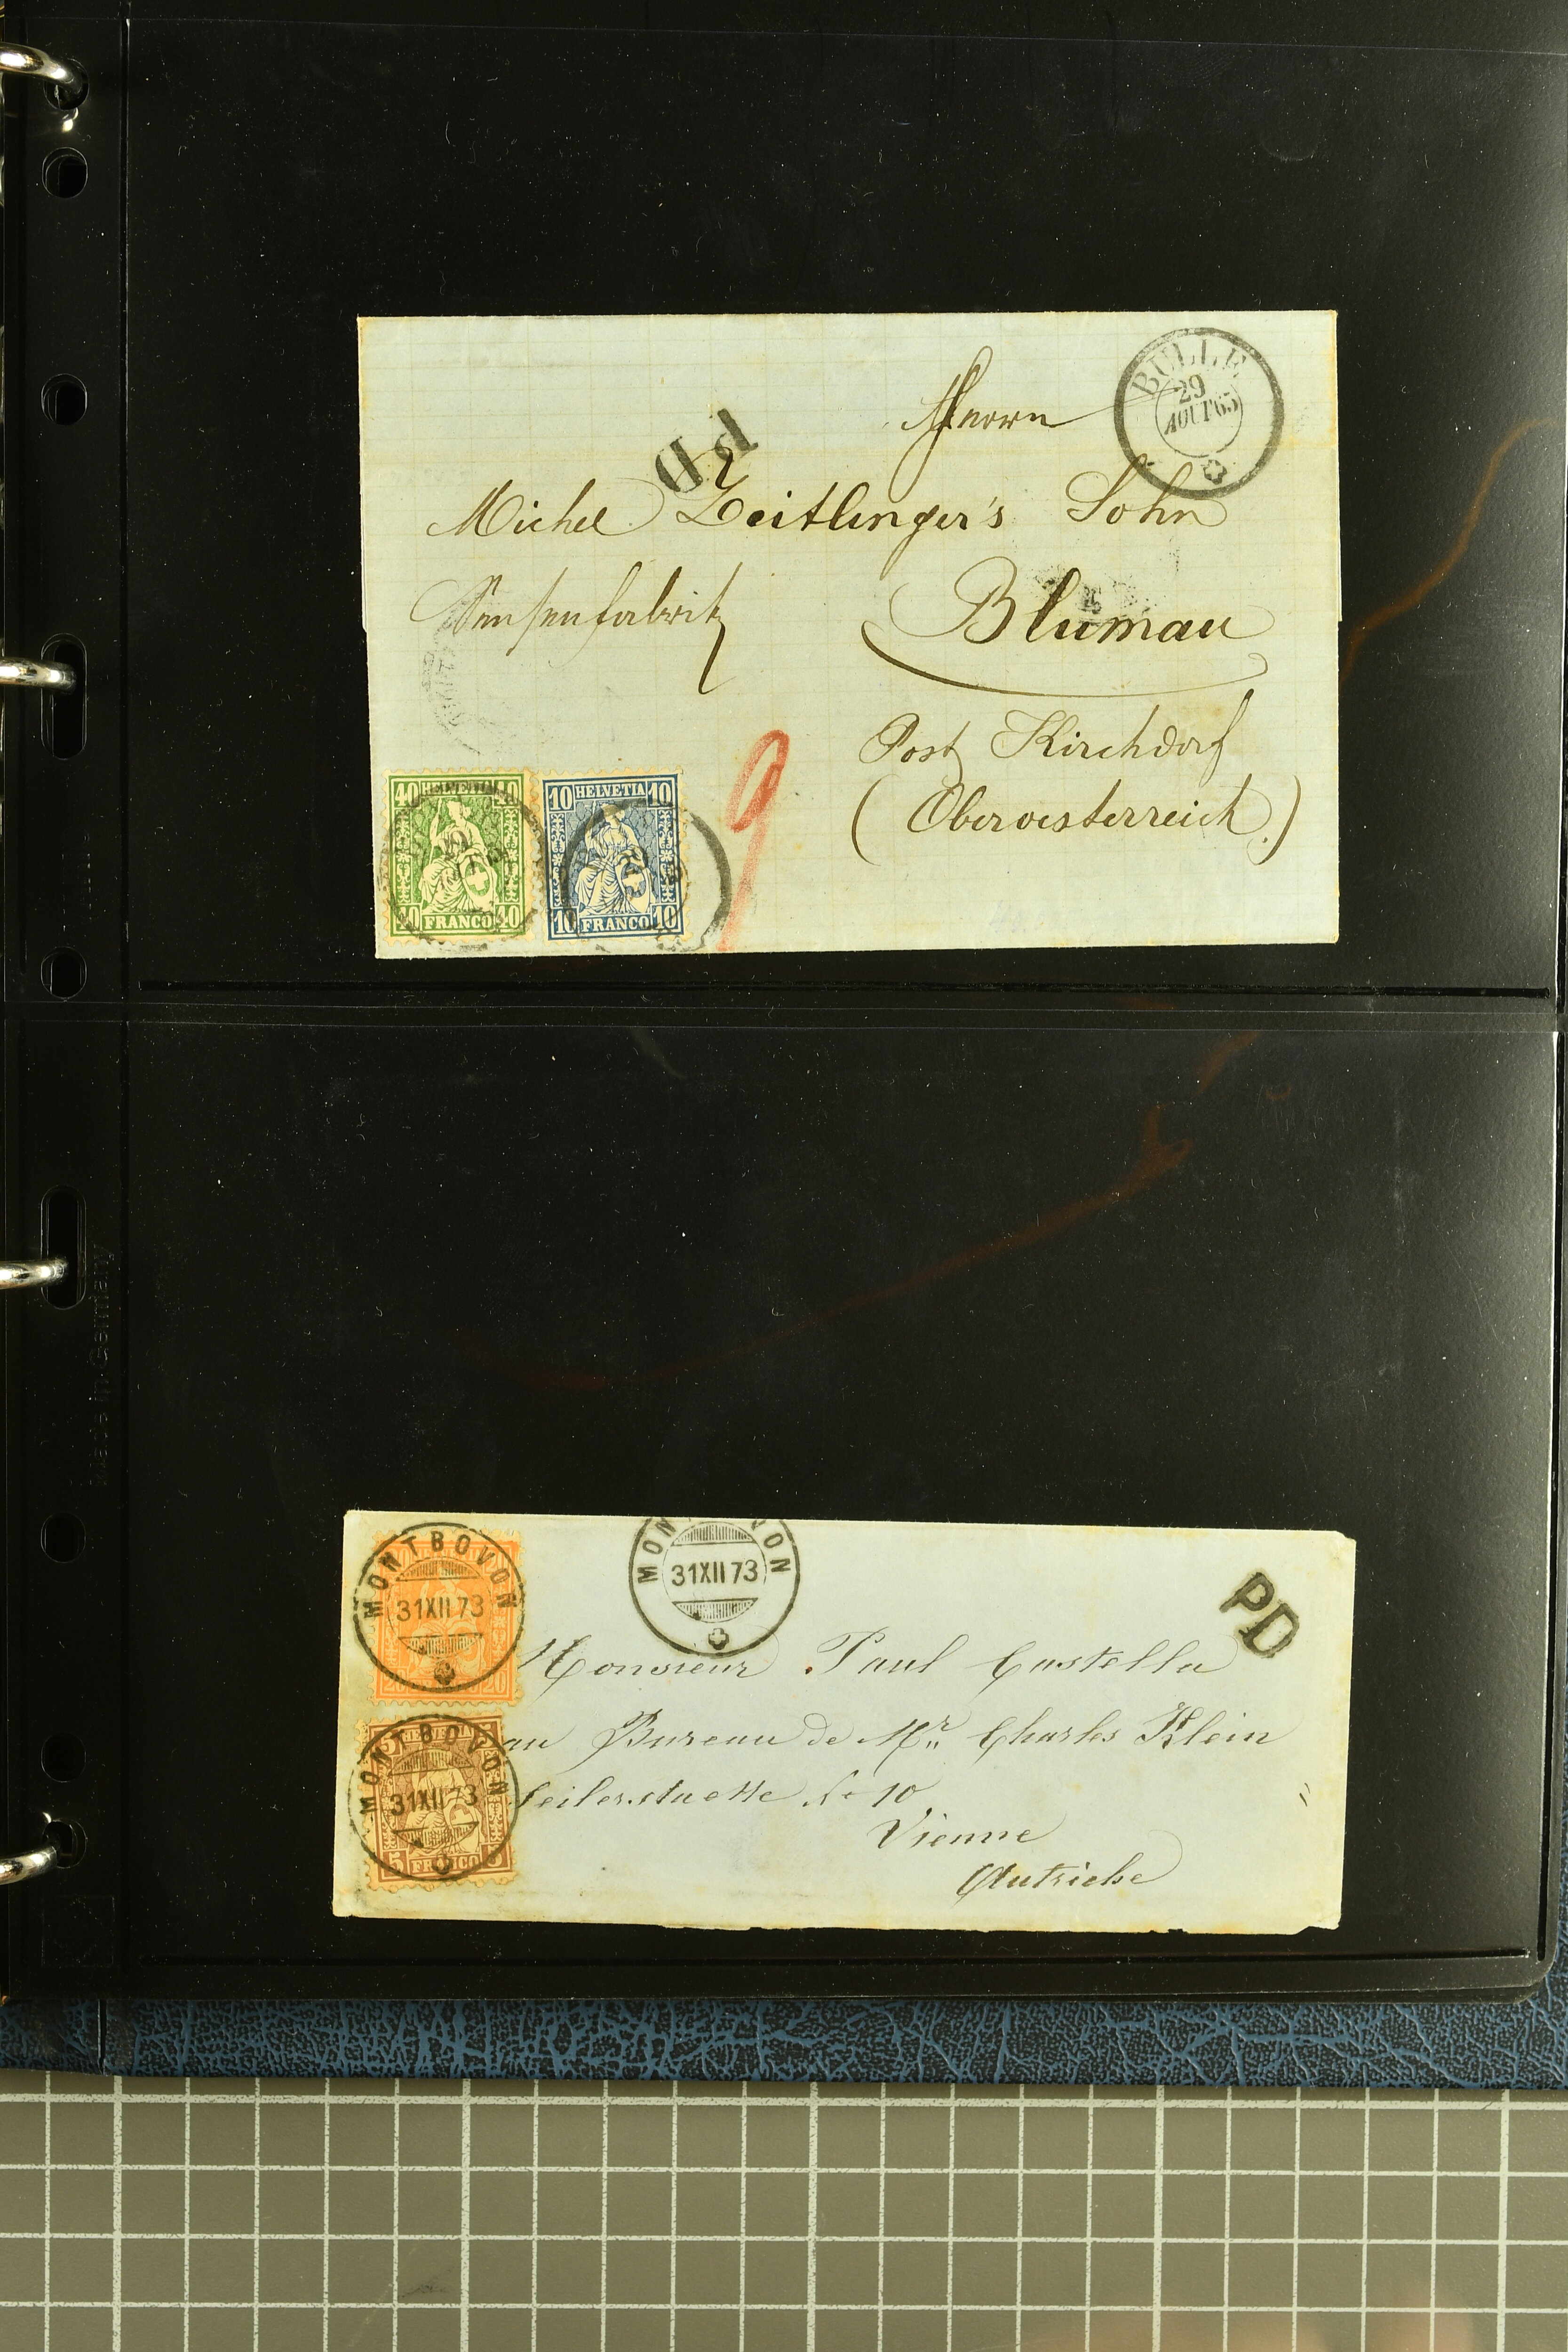 BULLE
29
AOUT 65
PD
Herrn
Michel Zeitlinger's Sohn
Sensenfabrik Blumau
Post Kirchdorf
(Oberoesterreich.)
40 HELVETIA 40
40 FRANCO 40
10 HELVETIA 10
10 FRANCO 10
9
Made in Germany
MONTBOVON
31 XII 73
MONTBOVON
31 XII 73
PD
20 20
Monsieur Paul Castella
au Bureau de Mr. Charles Klein
Seilerstaette No 10
Vienne
Autriche
HELVETIA
MONTBOVON
31 XII 73
5 FRANCO 5